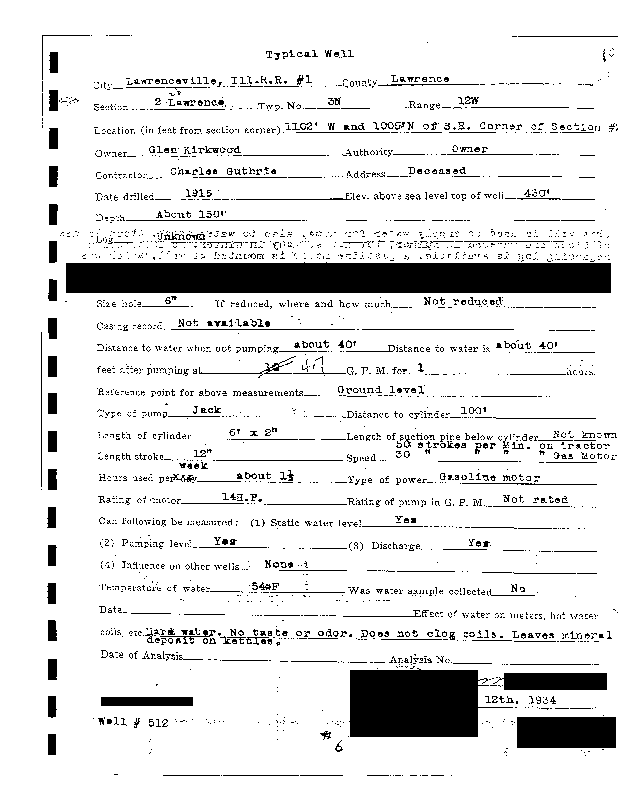 Typical Well
City Lawrenceville, Ill.R.R. #1 County Lawrence
Section 2 Lawrence Twp. No. 3N Range 12W
Location (in feet from section corner) 1102' W and 1005'N of S.E. Corner of Section #2
Owner Glen Kirkwood Authority Owner
Contractor Charles Guthrie Address Deceased
Date drilled 1915 Elev. above sea level top of well 430'
Depth About 150'
Log Unknown
Size hole 6" If reduced, where and how much Not reduced
Casing record Not available
Distance to water when not pumping about 40' Distance to water is about 40'
feet after pumping at G. P. M. for 1 hours
Reference point for above measurements Ground level
Type of pump Jack Distance to cylinder 100'
Length of cylinder 6' x 2" Length of suction pipe below cylinder Not known
50 strokes per Min. on tractor
Length stroke 12" Speed 30 " " " " Gas Motor
week
Hours used per day about 1½ Type of power Gasoline motor
Rating of motor 1½H.P. Rating of pump in G. P. M. Not rated
Can following be measured: (1) Static water level Yes
(2) Pumping level Yes (3) Discharge Yes
(4) Influence on other wells None
Temperature of water 54°F Was water sample collected No
Date Effect of water on meters, hot water
coils, etc. Hard water. No taste or odor. Does not clog coils. Leaves mineral
deposit on kettles.
Date of Analysis Analysis No.
12th, 1934
Well # 512
#
6